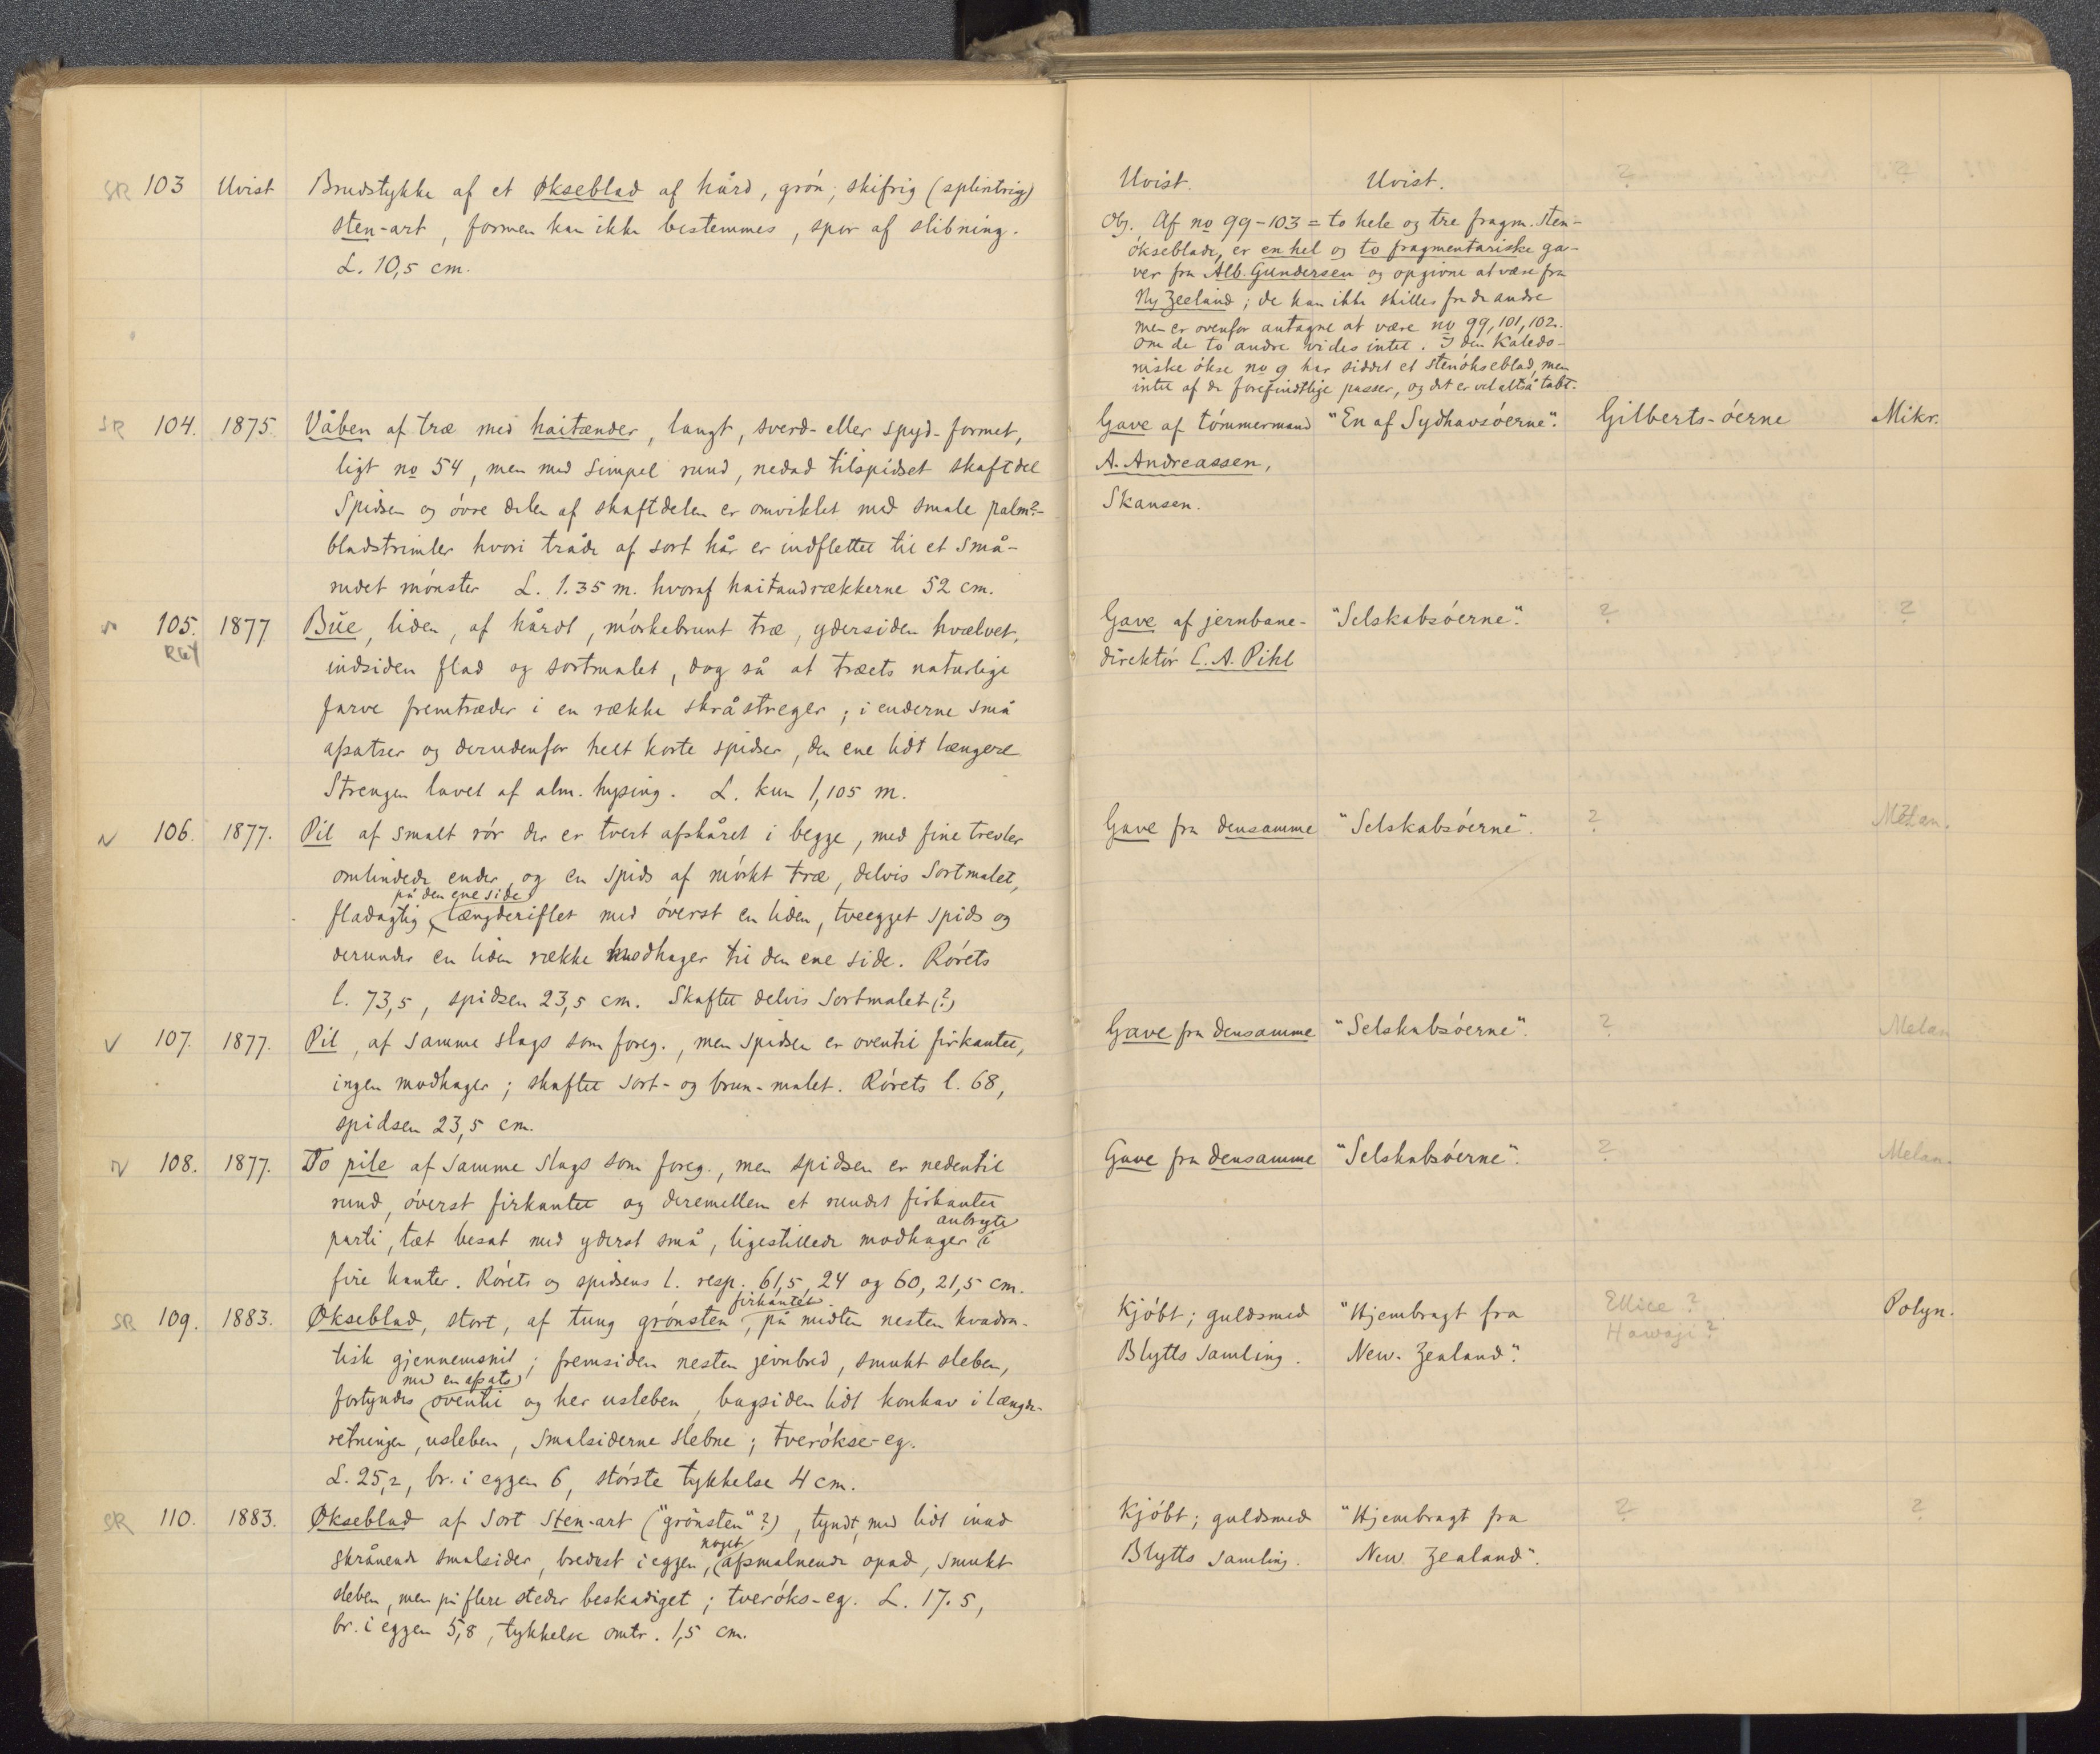 SR 103 Uvist Brudstykke af et økseblad af hård, grøn, skifrig (splintrig) Uvist. Uvist. ? ?
sten-art, formen kan ikke bestemmes, spor af slibning.
L. 10,5 cm.
Obj. Af no 99-103 = to hele og tre fragm. sten-
økseblade, er en hel og to fragmentariske ga-
ver fra Alb. Gundersen og opgivne at være fra
Ny Zeeland; de kan ikke skilles fra de andre
men er ovenfor antagne at være no 99, 101, 102.
Om de to andre vides intet. I den Kaledo-
niske økse no 9 har siddet et stenøkseblad, men
intet af de forefindtlige passer, og det er vel altså tabt.
SR 104. 1875 Våben af træ med haitænder, langt, sverd- eller spyd-formet, Gave af tömmermand "En af Sydhavsöerne". Gilberts-öerne Mikr.
ligt no 54, men med simpel rund, nedad tilspidset skaftdel A. Andreassen,
Spidsen og övre delen af skaftdelen er omviklet med smale palm?- Skansen.
bladstrimler hvori tråde af sort hår er indflettet til et små-
rudet mönster L. 1.35 m. hvoraf haitandrækkerne 52 cm.
v 105. 1877 Bue, liden, af hårdt, mörkebrunt træ, ydersiden hvælvet, Gave af jernbane- "Selskabsöerne". ? ?
indsiden flad og sortmalet, dog så at træets naturlige direktör C. A. Pihl
farve fremtræder i en række skråstreger; i enderne små
afsatser og derudenfor helt korte spidser, den ene lidt længere
Strengen lavet af alm. hysing. L. kun 1,105 m.
v 106. 1877. Pil af smalt rör der er tvert afskåret i begge, med fine trevler Gave fra densamme "Selskabsöerne". ? Melan.
omvindede ender, og en spids af mörkt træ, delvis sortmalet,
på den ene side
fladagtig længderiflet med överst en liden, tveegget spids og
derunder en liden række modhager til den ene side. Rörets
l. 73,5, spidsen 23,5 cm. Skaftet delvis sortmalet (?)
v 107. 1877. Pil, af samme slags som foreg., men spidsen er oventil firkantet, Gave fra densamme "Selskabsöerne". ? Melan
ingen modhager; skaftet sort- og brun-malet. Rörets l. 68,
spidsen 23,5 cm.
v 108. 1877. To pile af samme slags som foreg., men spidsen er nedentil Gave fra densamme "Selskabsöerne". ? Melan.
rund, överst firkantet og deremellem et rundet firkantet
anbragte
parti, tæt besat med yderst små, ligestillede modhager i
fire kanter. Rörets og spidsens l. resp. 61,5, 24 og 60, 21,5 cm.
firkantet
SR 109. 1883. Økseblad, stort, af tung grönsten, på midten nesten kvadra- Kjöbt; guldsmed "Hjembragt fra Ellice? Polyn.
tisk gjennemsnit; fremsiden nesten jevnbred, smukt sleben, Blytts samling. New-Zealand". Hawaji?
med en afsats
fortyndes oventil og her usleben, bagsiden lidt konkav i længde-
retningen, usleben, smalsiderne slebne; tverökse-eg.
L. 25,2, br. i eggen 6, störste tykkelse 4 cm.
SR 110. 1883. Økseblad af sort sten-art ("grönsten"?), tyndt, med lidt inad Kjöbt; guldsmed "Hjembragt fra ? ?
noget
skrånende smalsider, bredest i eggen, afsmalnende opad, smukt Blytts samling. New Zealand".
sleben, men på flere steder beskadiget; tveröks-eg. L. 17.5,
br. i eggen 5,8, tykkelse omtr. 1,5 cm.